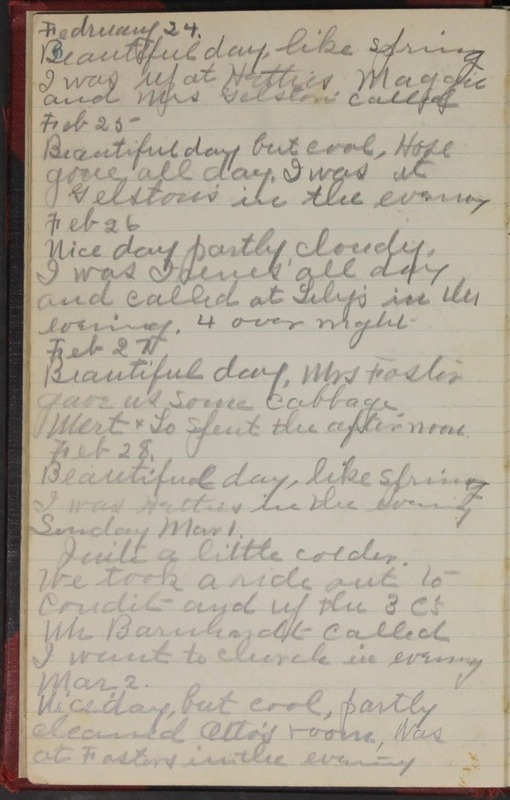 February 24.
Beautiful day, like spring
I was up at Hatties Maggie
and Mrs Gelston called
Feb 25
Beautiful day but cool, Hose
gone all day. I was at
Gelstons in the evening
Feb 26
Nice day partly cloudy.
I was Irenes all day
and called at Lily's in the
evening. 4 over night
Feb 27
Beautiful day, Mrs Foster
gave us some cabbage,
Mert & Lo spent the afternoon.
Feb 28.
Beautiful day, like spring
I was Hatties in the evening
Sunday Mar 1.
Quite a little colder.
We took a ride out to
Condit and up the 3 C's
Mr Barnhardt called
I want to church in evening
Mar 2.
Nice day, but cool, partly
cleaned Otto's room, Was
at Fosters in the evening